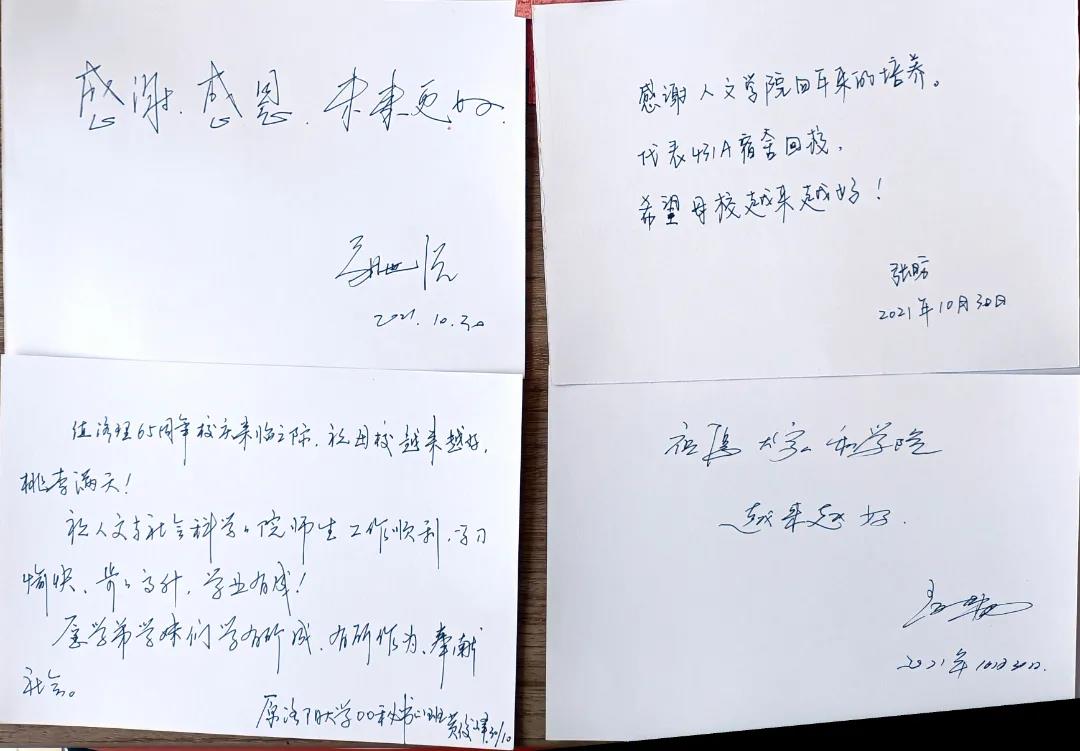 感谢.感恩.未来更好.
2021.10.30
感谢人文学院四年来的培养。
代表431A宿舍回校,
希望母校越来越好!
张昉
2021年10月30日
值洛理65周年校庆来临之际.祝母校越来越好,
桃李满天!
祝人文与社会科学学院师生工作顺利.学习
愉快、步步高升,学业有成!
愿学弟学妹们学有所成.有所作为,奉献
社会。
原洛阳大学00秘书班黄俊 30/10
祝 大学 学院
越来越好.
2021年10月30日.